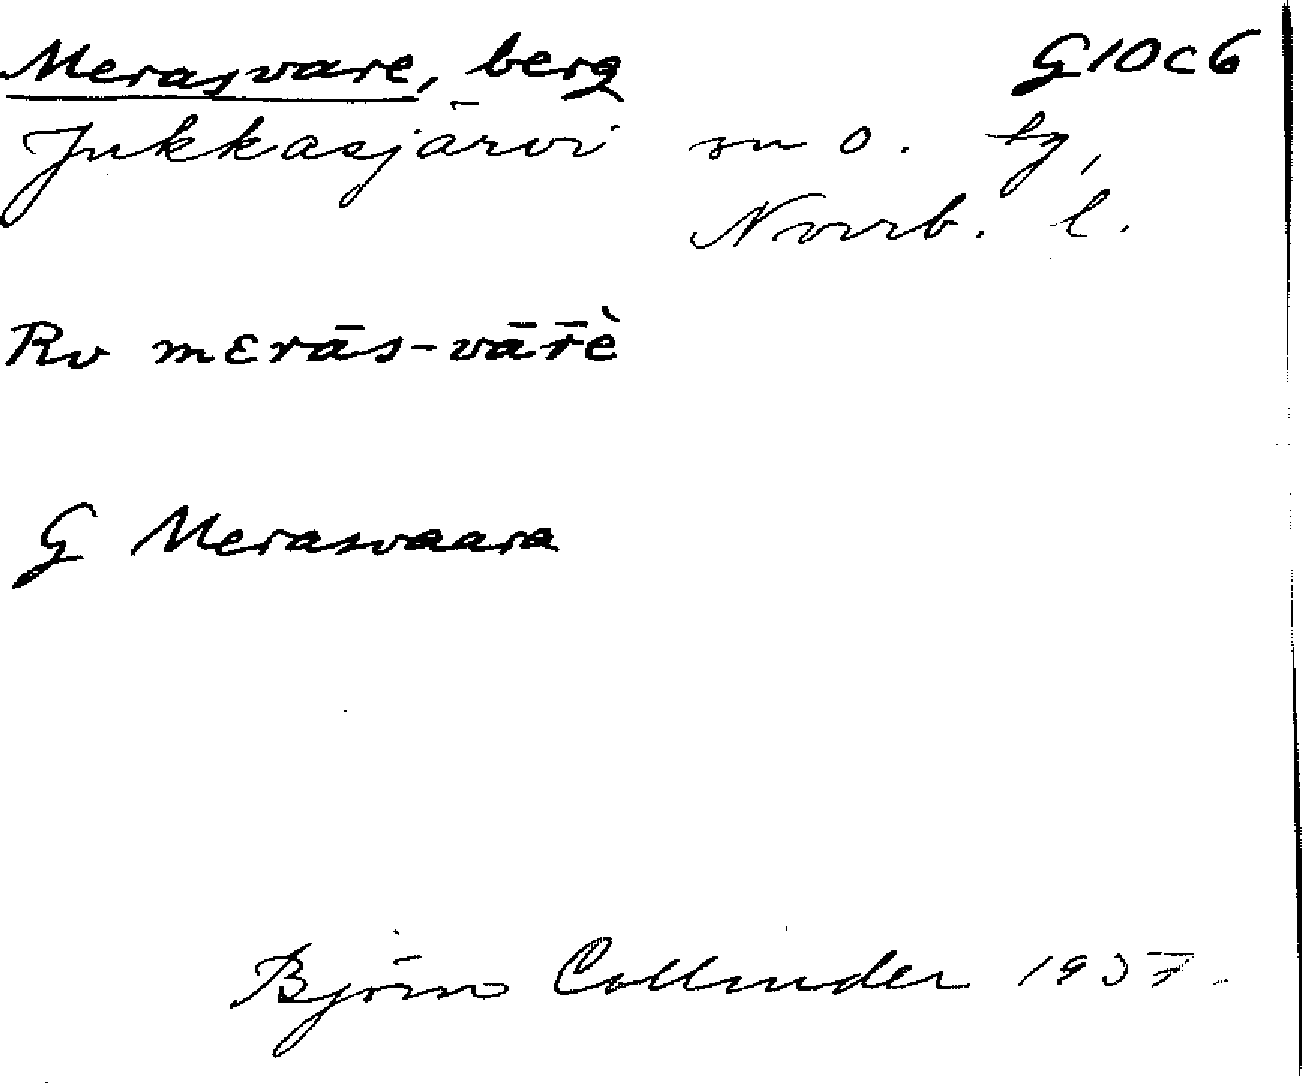 Merasvare, berg G10c6
Jukkasjärvi sn o. tg,
Norrb. l.
Rv mɛrās-vār̄è
G Merasvaara
Björn Collinder 1937.